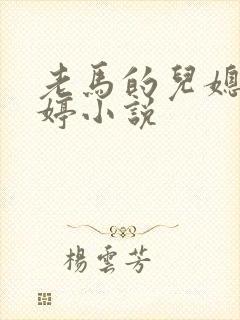 老馬的兒媳
婷小説
楊雲芳